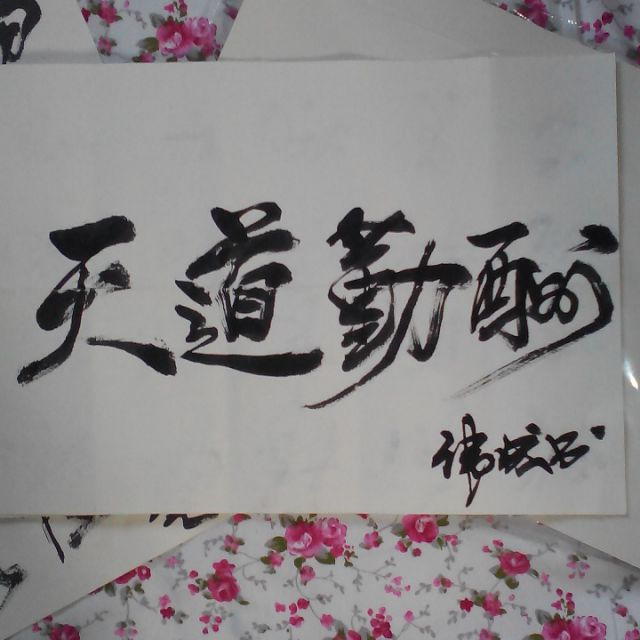 天道勤酬